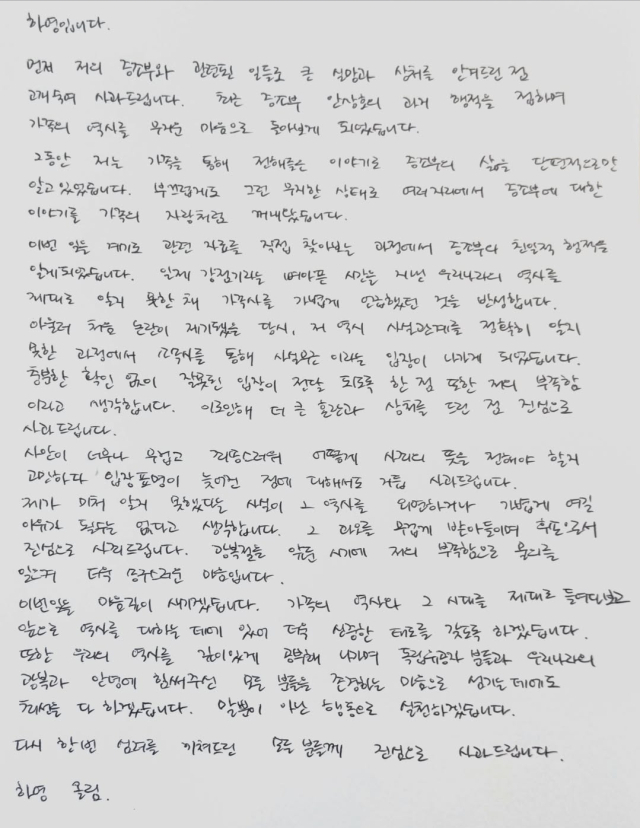 하영입니다.
먼저 저의 증조부와 관련된 일들로 큰 실망과 상처를 안겨드린 점
고개숙여 사과드립니다. 최근 증조부 안상호의 과거 행적을 접하며
가족의 역사를 무거운 마음으로 돌아보게 되었습니다.
그동안 저는 가족을 통해 전해들은 이야기로 증조부의 삶을 단편적으로만
알고있었습니다. 부끄럽게도 그런 무지한 상태로 여러자리에서 증조부에 대한
이야기를 가족의 자랑처럼 꺼내왔습니다.
이번 일을 계기로 관련 자료를 직접 찾아보는 과정에서 증조부의 친일적 행적을
알게되었습니다. 일제 강점기라는 뼈아픈 시간을 지닌 우리나라의 역사를
제대로 알지 못한 채 가족사를 가볍게 언급했던 것을 반성합니다.
아울러 처음 논란이 제기됐을 당시, 저 역시 사실관계를 정확히 알지
못한 과정에서 소속사를 통해 사실무근이라는 입장이 나가게 되었습니다.
충분한 확인 없이 잘못된 입장이 전달 되도록 한 점 또한 저의 부족함
이라고 생각합니다. 이로인해 더 큰 혼란과 상처를 드린 점 진심으로
사과드립니다.
사안이 너무나 무겁고 죄송스러워 어떻게 사죄의 뜻을 전해야 할지
고민하다 입장표명이 늦어진 점에 대해서도 거듭 사과드립니다.
제가 미처 알지 못했다는 사실이 그 역사를 외면하거나 가볍게 여길
이유가 될수는 없다고 생각합니다. 그 과오를 무겁게 받아들이며 후손으로서
진심으로 사죄드립니다. 광복절을 앞둔 시기에 저의 부족함으로 물의를
일으켜 더욱 송구스러운 마음입니다.
이번일을 마음깊이 새기겠습니다. 가족의 역사와 그 시대를 제대로 들여다보고
앞으로 역사를 대하는 데에 있어 더욱 신중한 태도를 갖도록 하겠습니다.
또한 우리의 역사를 깊이있게 공부해 나가며 독립유공자 분들과 우리나라의
광복과 안녕에 힘써주신 모든 분들을 존경하는 마음으로 섬기는 데에도
최선을 다 하겠습니다. 말뿐이 아닌 행동으로 실천하겠습니다.
다시 한번 심려를 끼쳐드린 모든 분들께 진심으로 사과드립니다.
하영 올림.